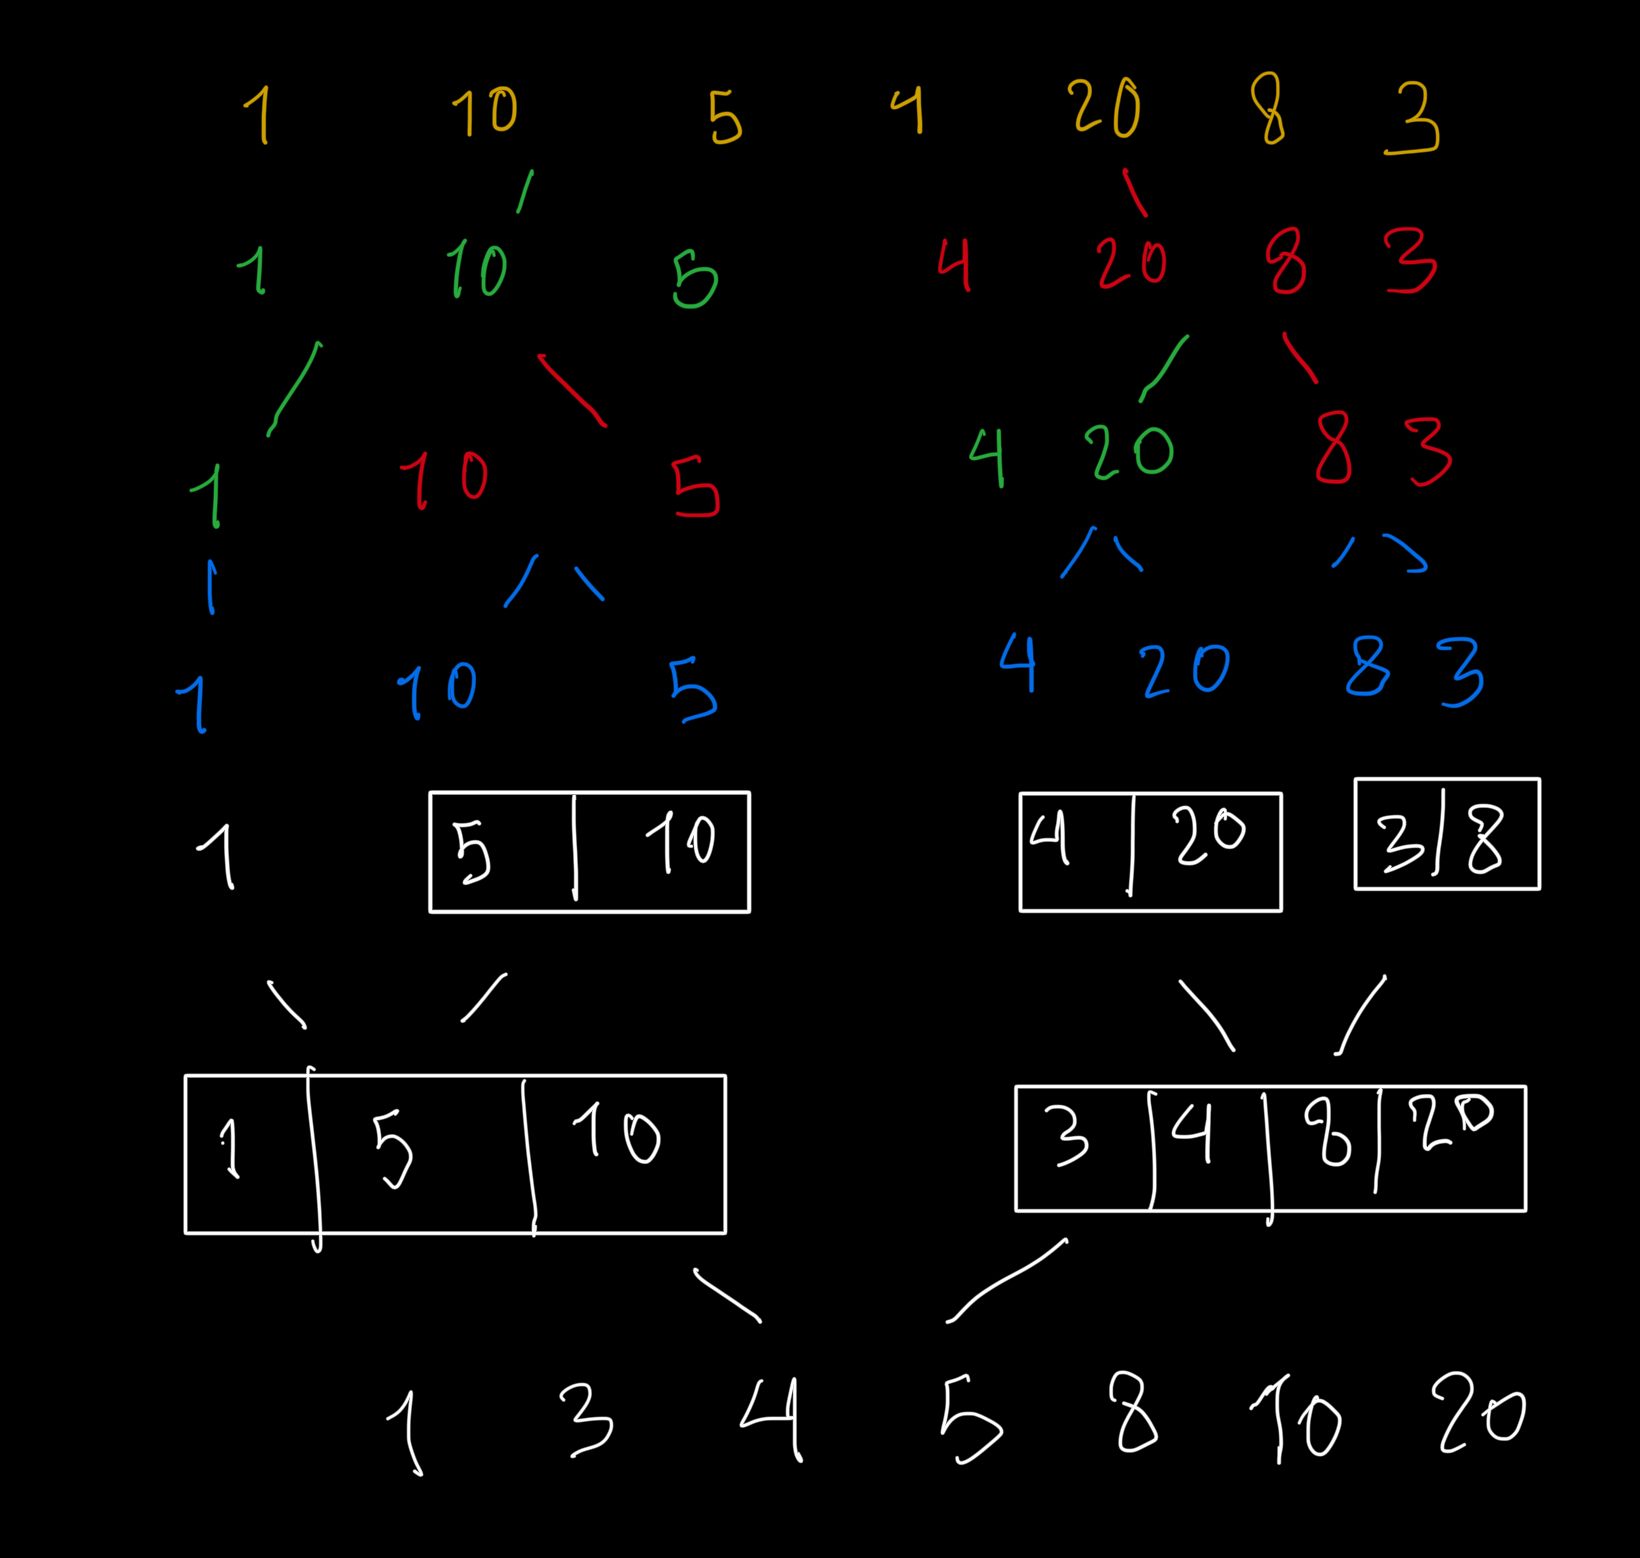 1 10 5 4 20 8 3
1 10 5 4 20 8 3
1 10 5 4 20 8 3
1 10 5 4 20 8 3
1 5 10 4 20 3 8
1 5 10 3 4 8 20
1 3 4 5 8 10 20